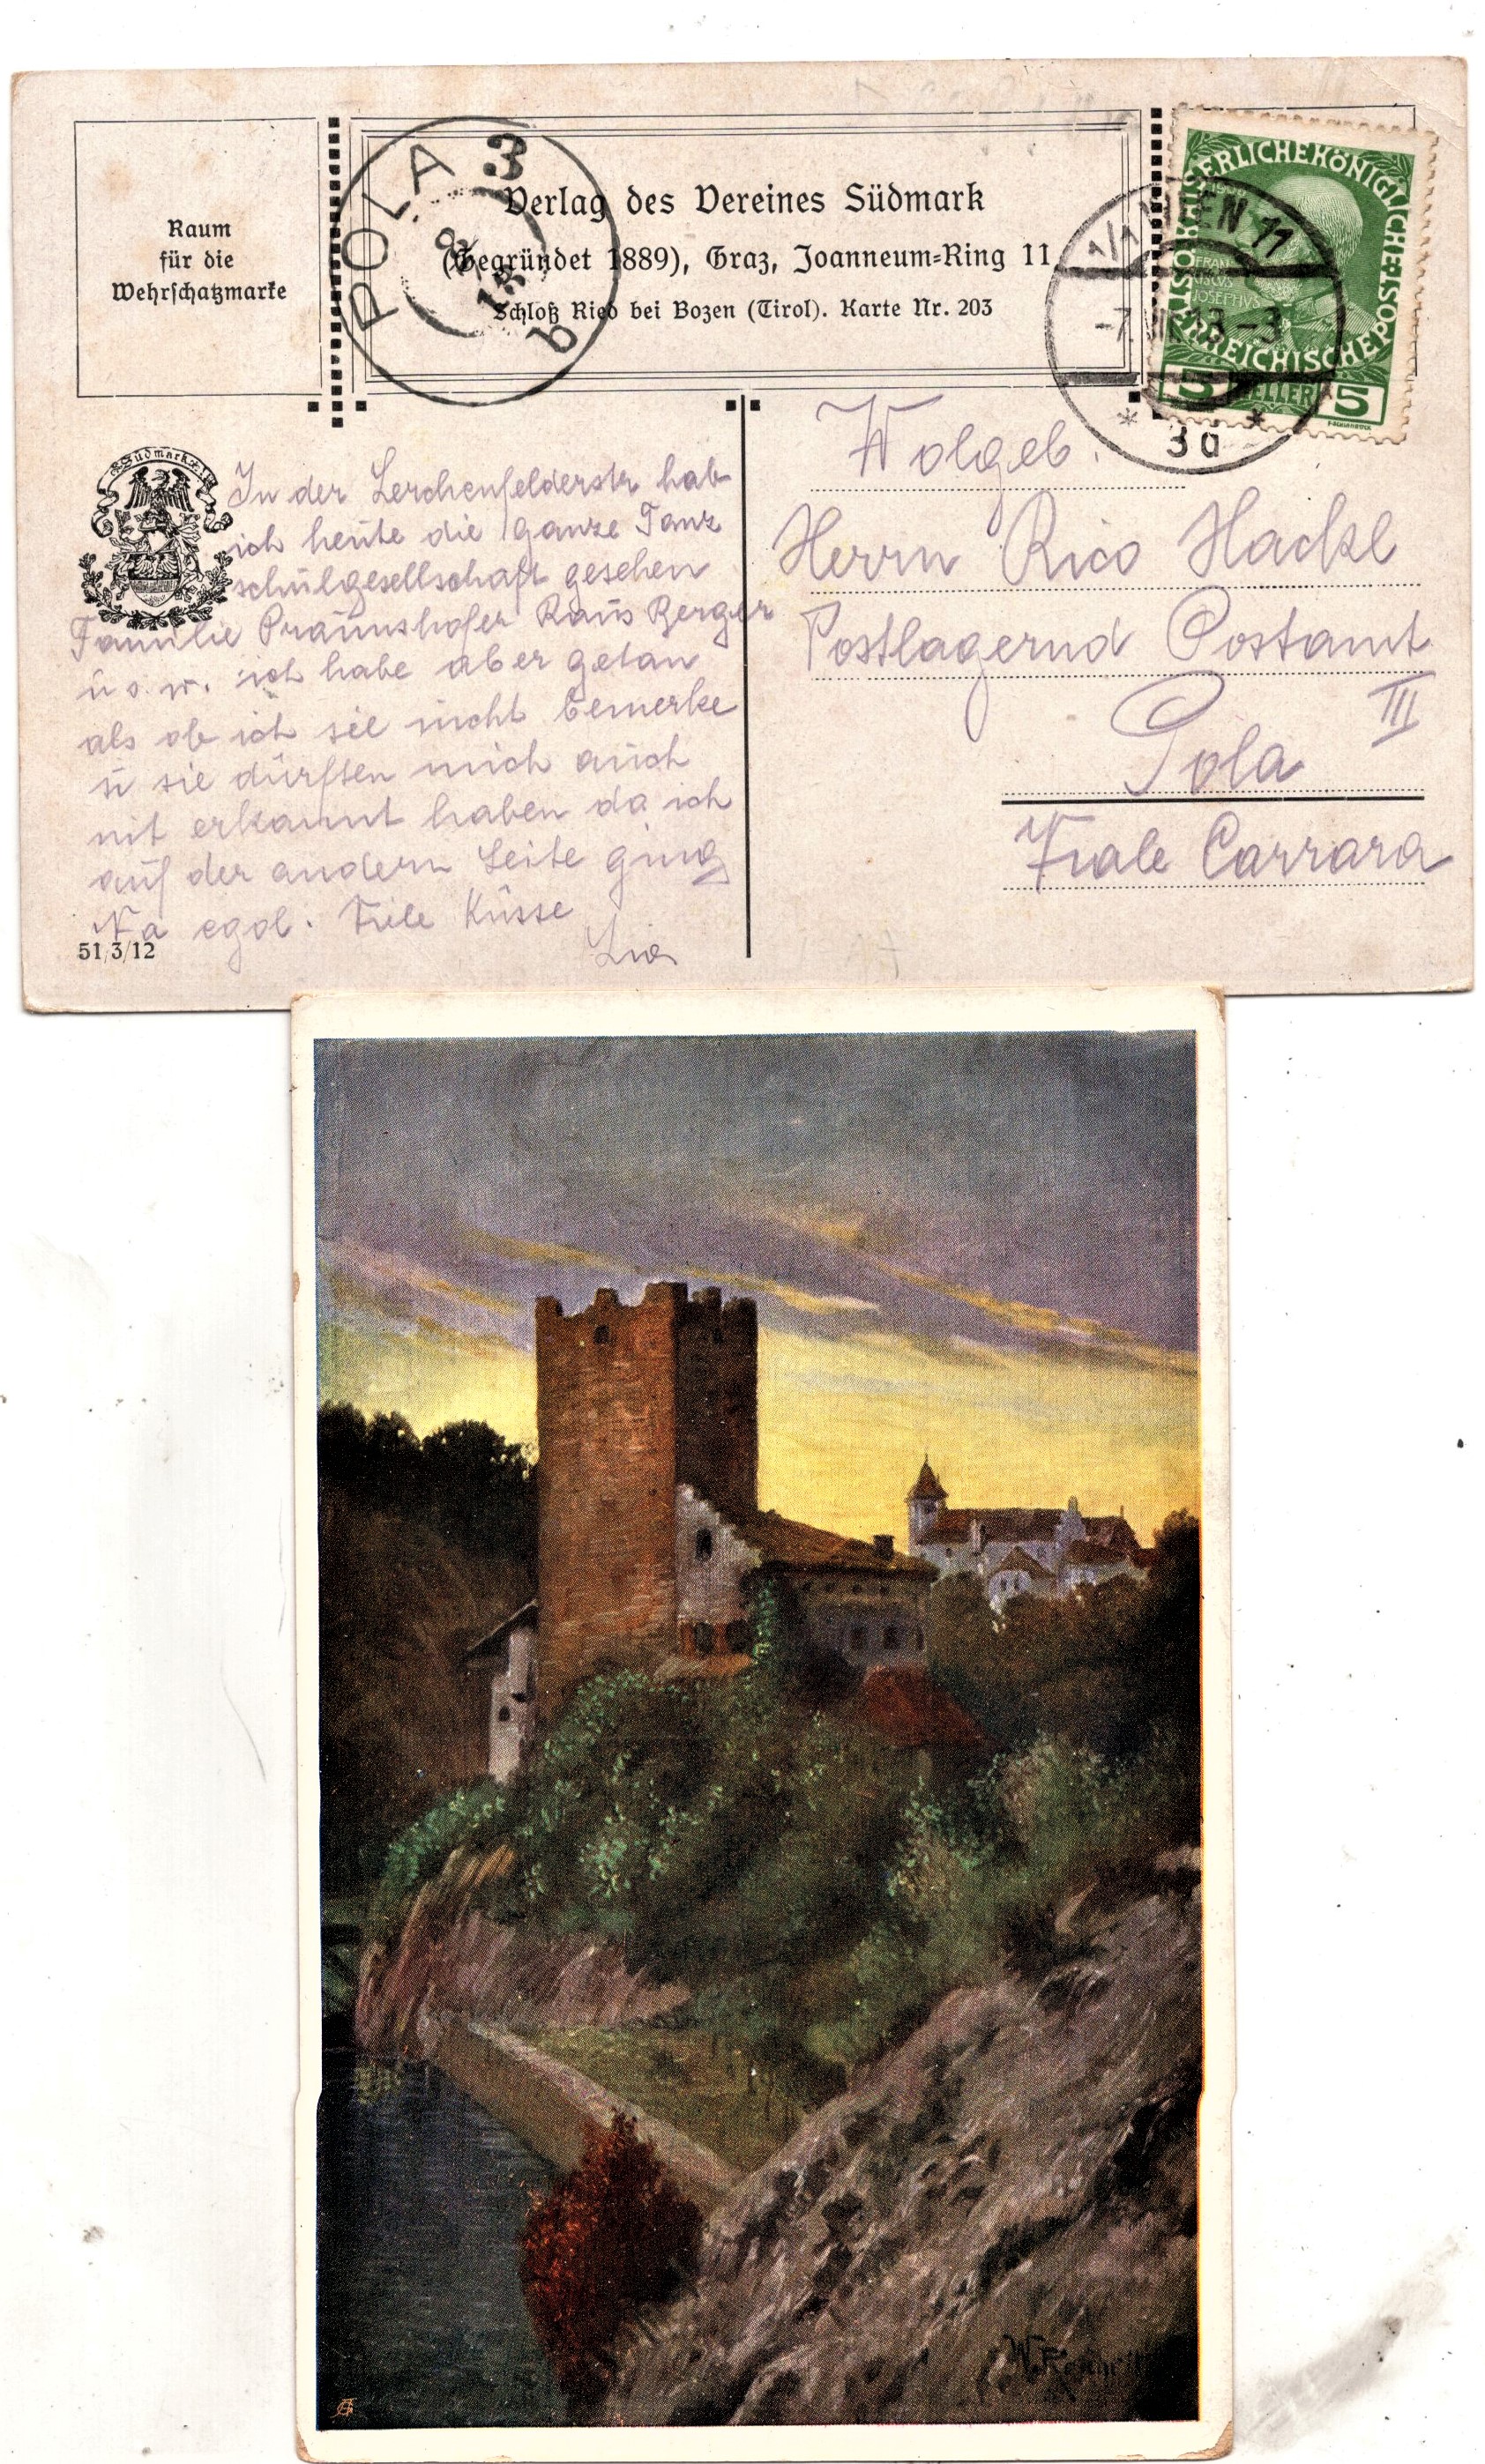 Raum
für die
Wehrschatzmarke
Verlag des Vereines Südmark
(Gegründet 1889), Graz, Joanneum=Ring 11
Schloß Ried bei Bozen (Tirol). Karte Nr. 203
POLA 3
8
13
b
KAISERLICHE KÖNIGLICHE
ÖSTERREICHISCHE POST
FRANCISCUS
JOSEPHVS
5 HELLER 5
1/1 WIEN 11
-7. 13-3
* 3d *
Südmark
In der Lerchenfelderstr hab
ich heute die ganze Tanz
schulgesellschaft gesehen
Familie Praunshofer Raus Berger
u s. w. ich habe aber getan
als ob ich sie nicht bemerke
u sie dürften mich auch
nit erkannt haben da ich
auf der andern Seite ging
Na egal. Viele Küsse
51/3/12
Wolgeb.
Herrn Rico Hackl
Postlagernd Postamt
III
Pola
Viale Carrara